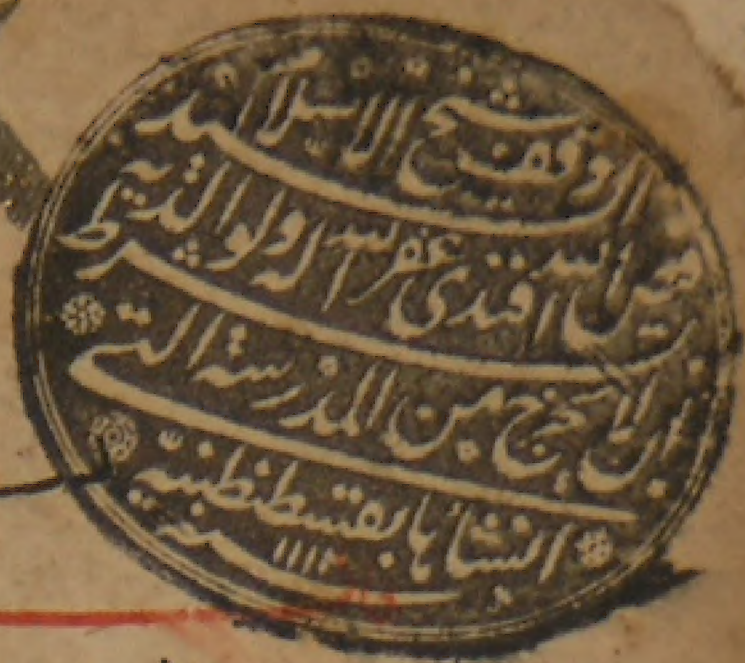 وقف شيخ الاسلام السيد
فيض الله افندى غفر الله له ولوالديه بشرط
ان لا يخرج من المدرسة التي
انشأها بقسطنطينية سنه ١١١٢